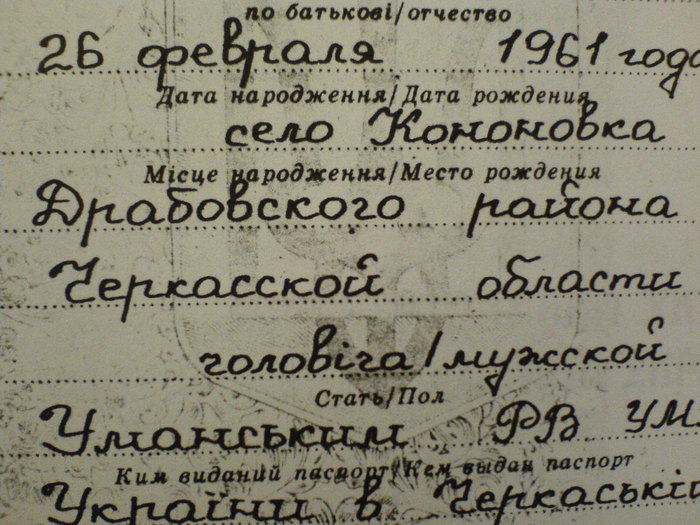 по батькові/отчество
26 февраля 1961 года
Дата народження/Дата рождения
село Кононовка
Місце народження/Место рождения
Драбовского района
Черкасской области
чоловіча/мужской
Стать/Пол
Уманським РВ УМ
Ким виданий паспорт/Кем выдан паспорт
України в Черкаській